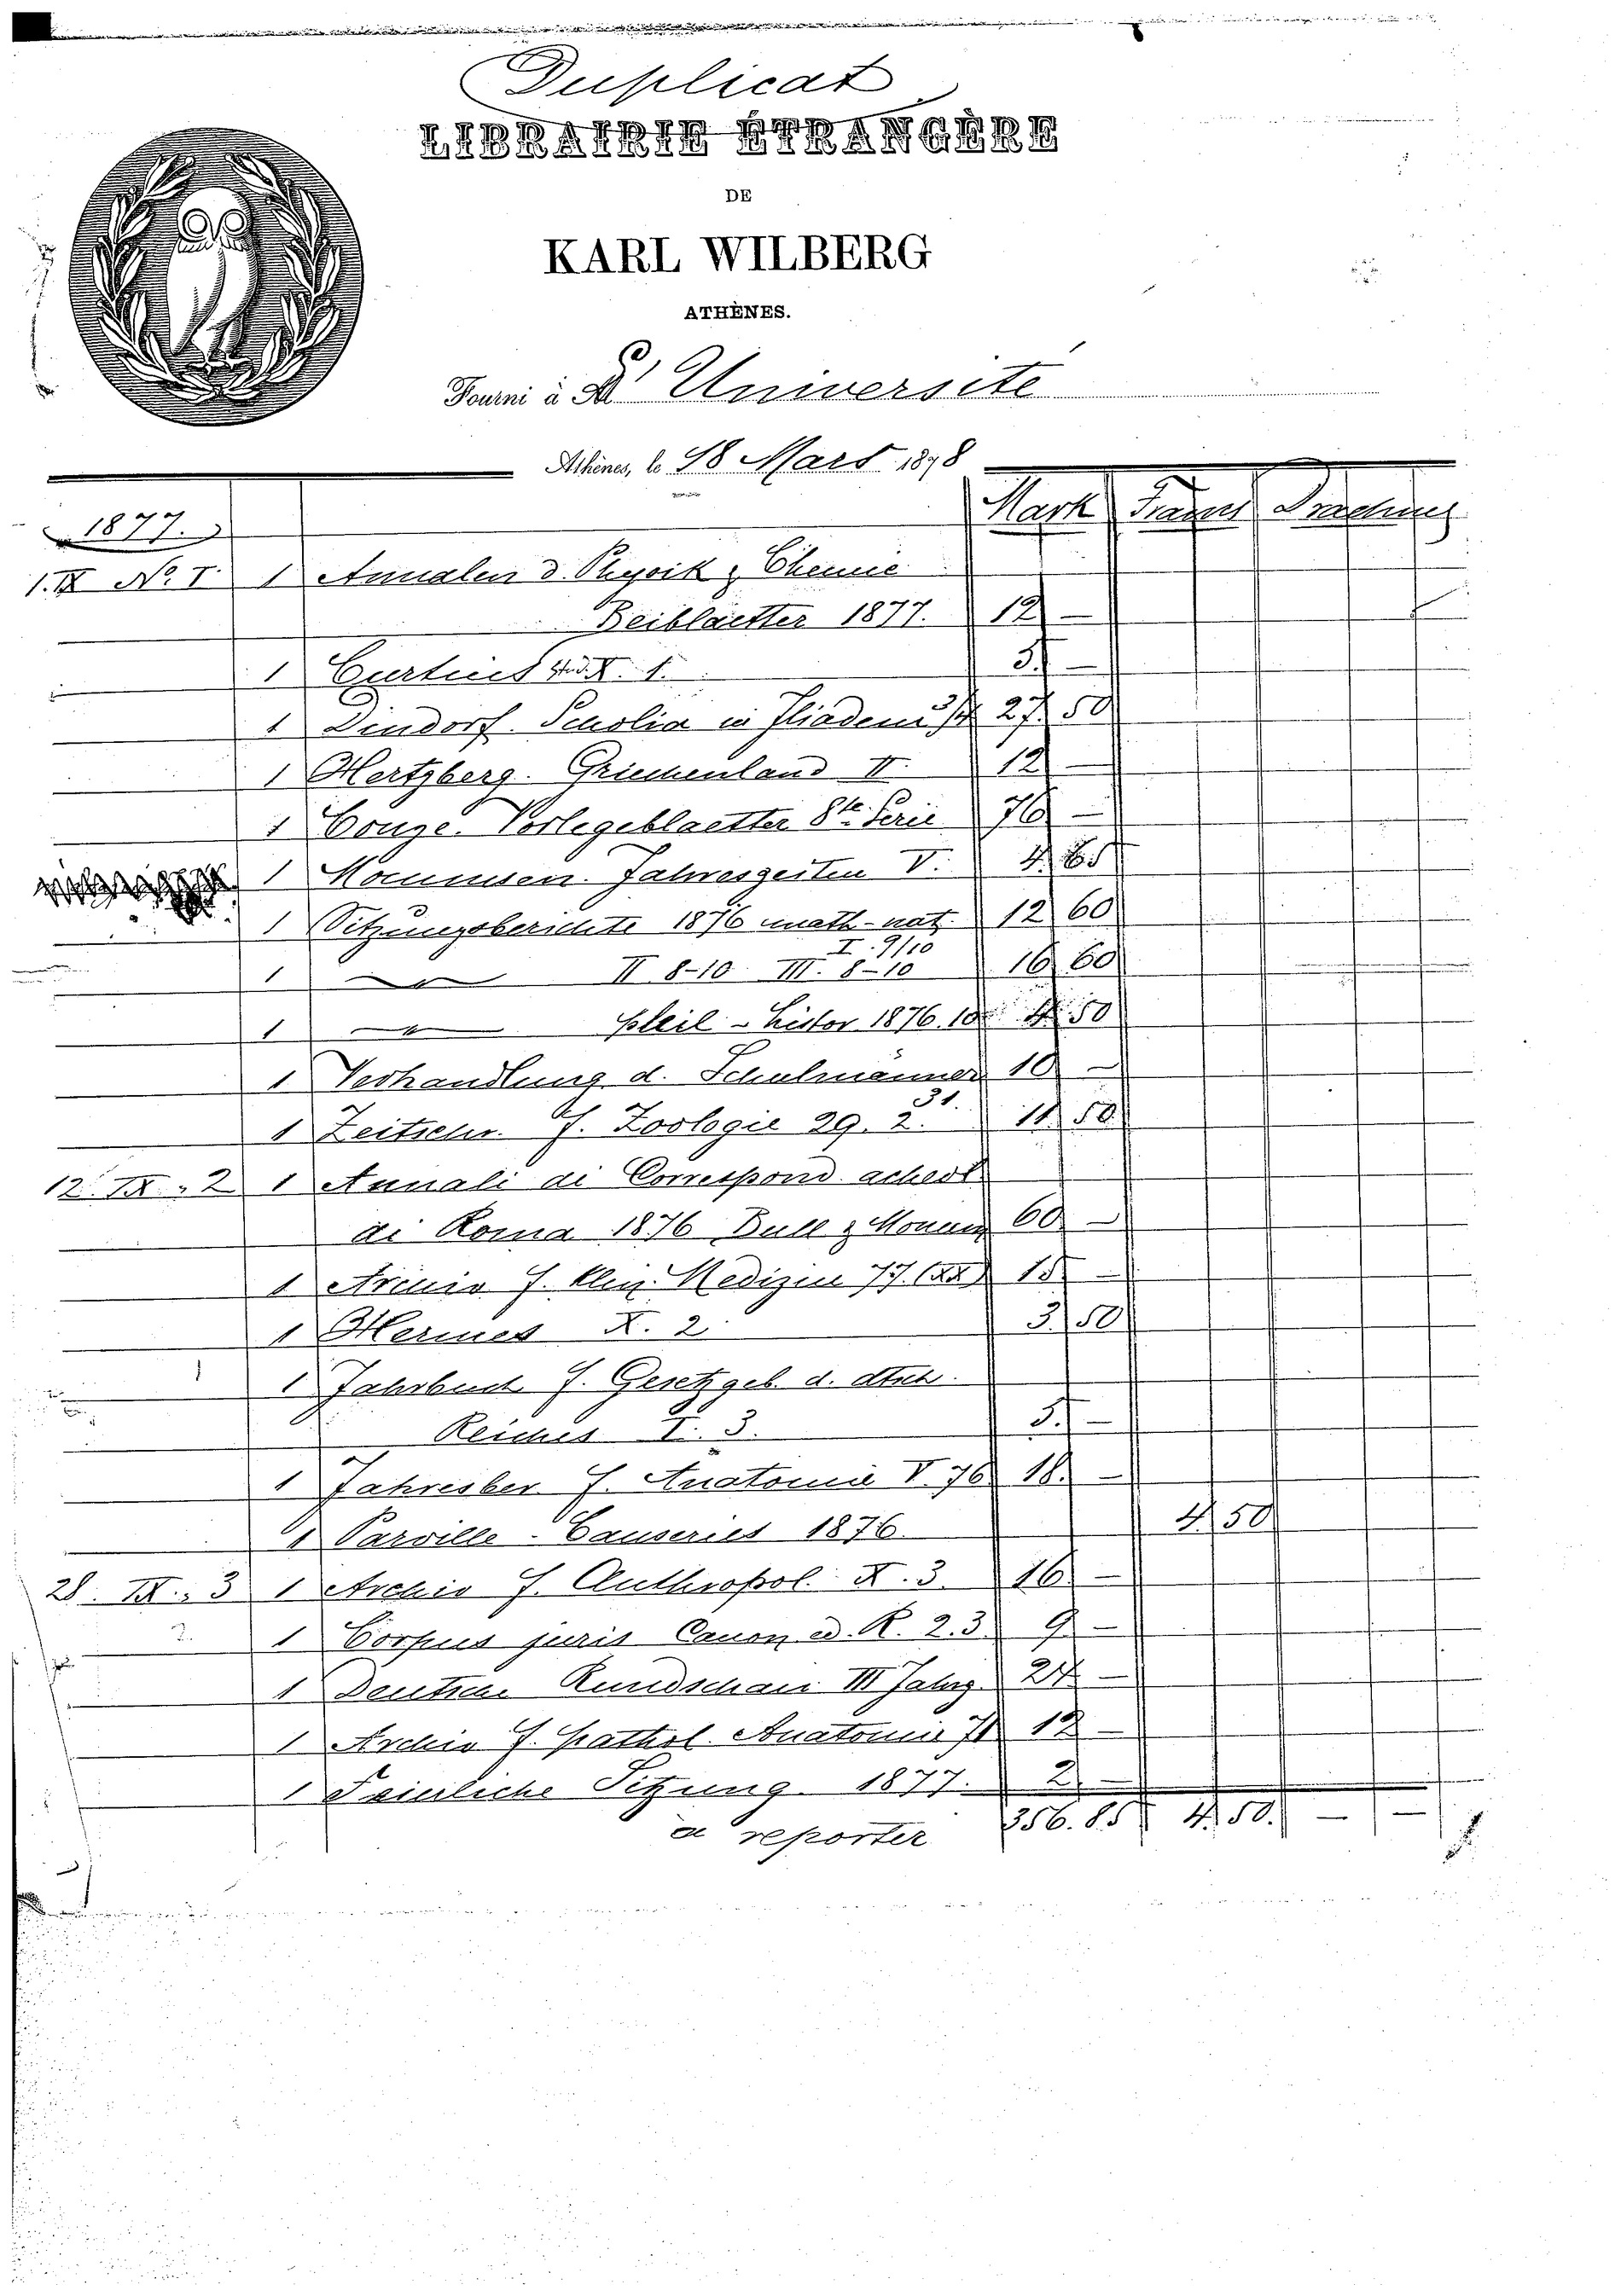 Duplicat
LIBRAIRIE ÉTRANGÈRE
DE
KARL WILBERG
ATHÈNES.
Fourni à L'Université
Athènes, le 18 Mars 1878
Mark Francs Drachmes
1877.
1. IX No. I. 1 Annalen d. Physik & Chemie
Beiblaetter 1877. 12 —
1 Curtius Stud. X. 1. 5. —
1 Dindorf. Scholia in Iliadem 3/4 27. 50
1 Hertzberg. Griechenland II. 12 —
1 Conze. Vorlegeblaetter 8te Serie 76 —
1 Mommsen. Jahreszeiten V. 4. 65
1 Sitzungsberichte 1876 math-nat. I. 9/10 12 60
1 — " — II 8-10 III. 8-10 16 60
1 — " — phil-histor 1876. 10 4. 50
1 Verhandlung d. Schulmänner 31. 10 —
1 Zeitschr. f. Zoologie 29. 2. 11. 50
12. IX. 2 1 Annali di Correspond. acheol
di Roma 1876 Bull & Monum 60 —
1 Archiv f. klin. Medizin 77. (XX) 15 —
1 Hermes X. 2. 3. 50
1 Jahrbuch f. Gesetzgeb. d. dtsch.
Reiches I. 3. 5. —
1 Jahresber f. Anatomie V. 76 18. —
1 Parville - Causeries 1876. 4. 50
28. IX. 3 1 Archiv f. Anthropol. X. 3. 16 —
1 Corpus juris Canon ed. R. 2.3 9 —
1 Deutsche Rundschau III Jahrg. 24 —
1 Archiv f. pathol. Anatomie 71 12 —
1 Feierliche Sitzung. 1877. 2 —
a reporter 356. 85 4. 50. — —